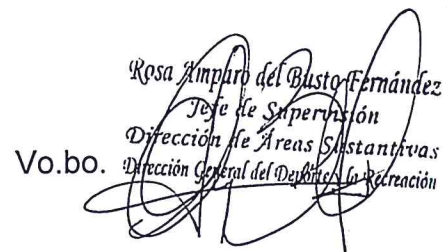 Rosa Amparo del Busto Fernández
Jefe de Supervisión
Dirección de Áreas Sustantivas
Vo.bo. Dirección General del Deporte y la Recreación